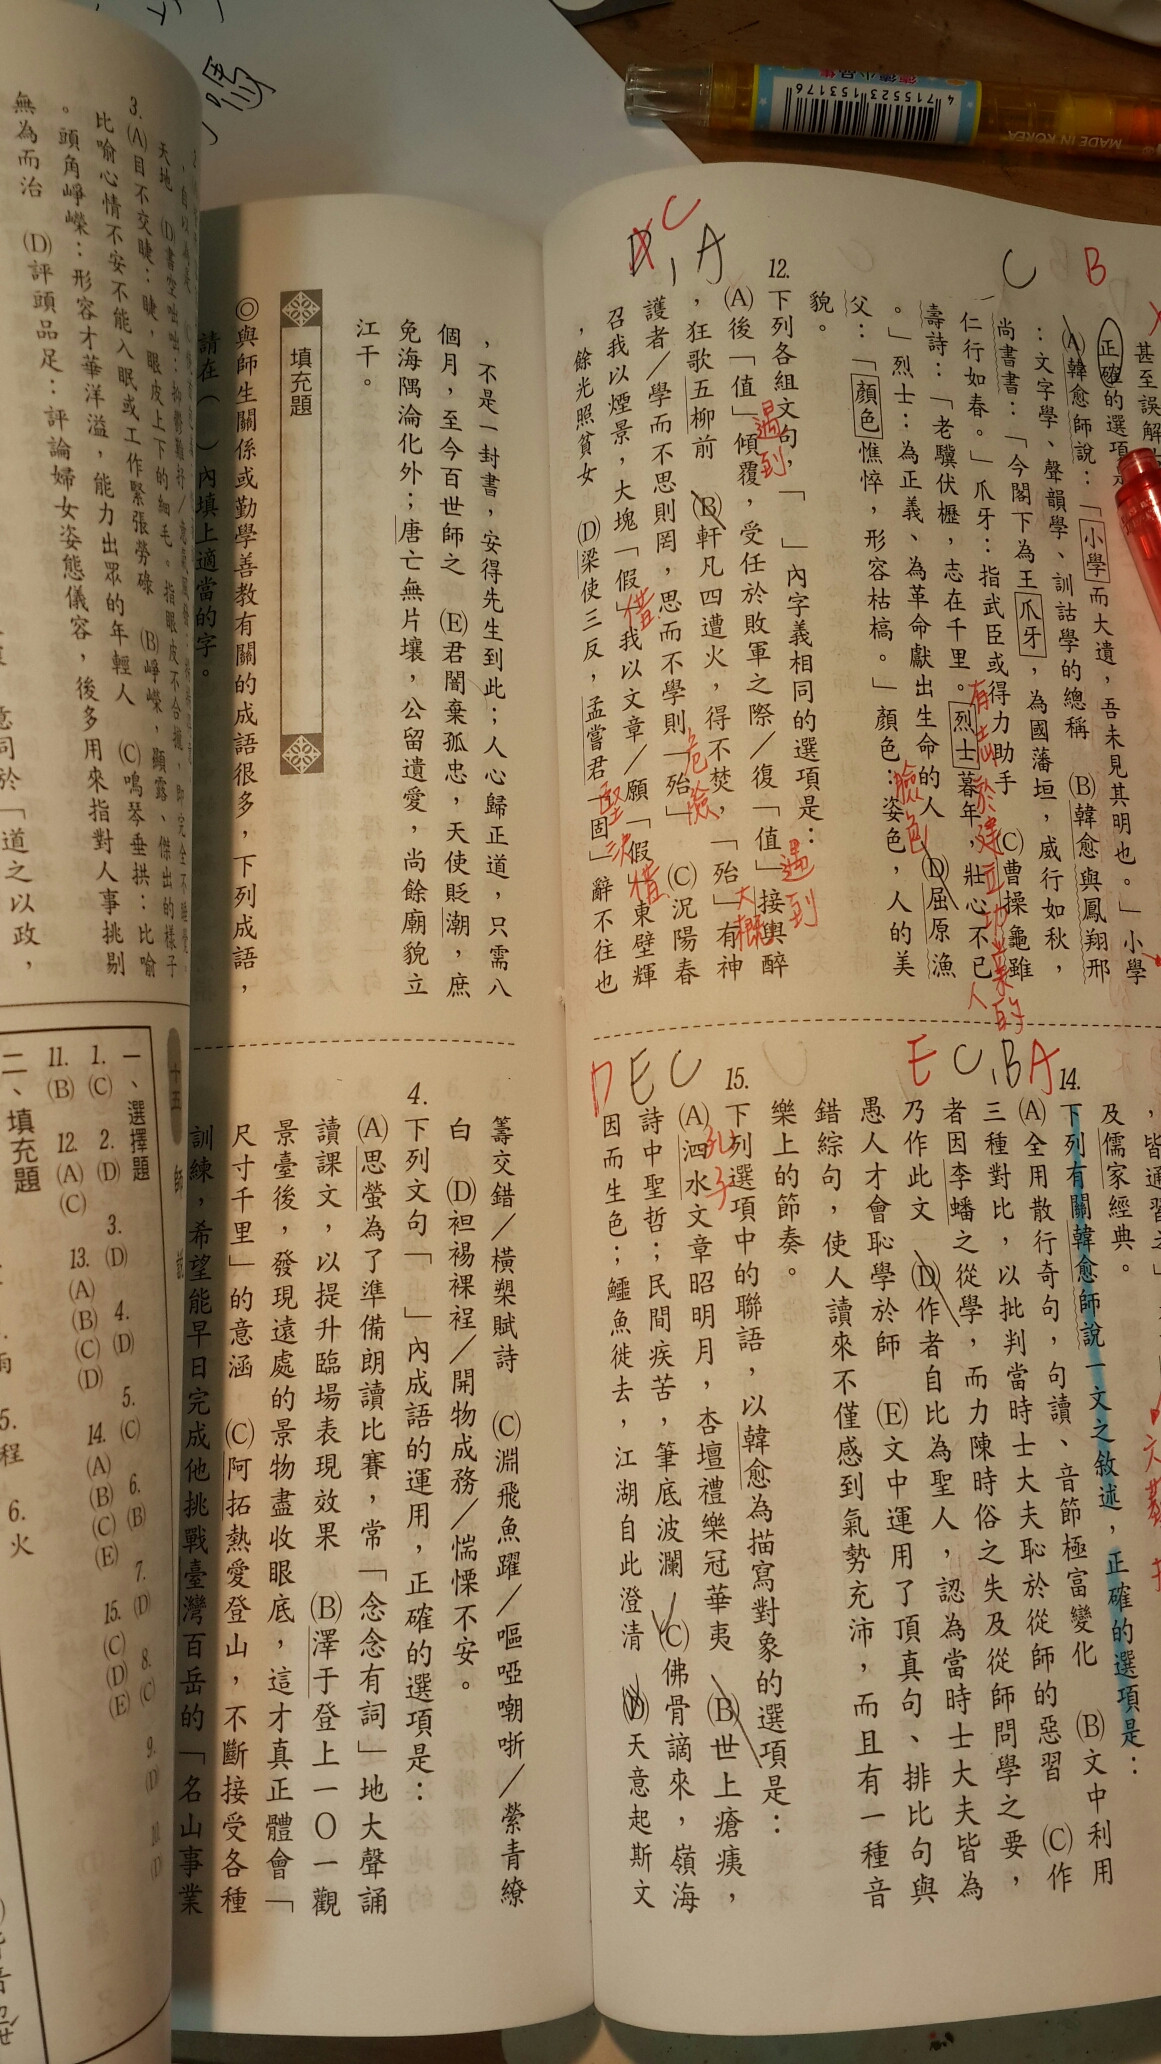 甚至誤解
正確的選項是
(A)韓愈師說：「小學而大遺，吾未見其明也。」小學
：文字學、聲韻學、訓詁學的總稱　(B)韓愈與鳳翔邢
尚書書：「今閣下為王爪牙，為國藩垣，威行如秋，
仁行如春。」爪牙：指武臣或得力助手　(C)曹操龜雖
壽詩：「老驥伏櫪，志在千里。烈士暮年，壯心不已
。」烈士：為正義、為革命獻出生命的人　(D)屈原漁
父：「顏色憔悴，形容枯槁。」顏色：姿色，人的美
貌。
C B
有志於建立功業的人
臉色
12.下列各組文句，「　」內字義相同的選項是：
(A)後「值」傾覆，受任於敗軍之際／復「值」接輿醉
，狂歌五柳前　(B)軒凡四遭火，得不焚，「殆」有神
護者／學而不思則罔，思而不學則「殆」　(C)況陽春
召我以煙景，大塊「假」我以文章／願「假」東壁輝
，餘光照貧女　(D)梁使三反，孟嘗君「固」辭不往也
C
D,A
遇到
遇到
大概
危險
借
借
堅決
，不是一封書，安得先生到此；人心歸正道，只需八
個月，至今百世師之　(E)君闇棄孤忠，天使貶潮，庶
免海隅淪化外；唐亡無片壤，公留遺愛，尚餘廟貌立
江干。
填充題
◎與師生關係或勤學善教有關的成語很多，下列成語，
請在（　）內填上適當的字。
及儒家經典。
14.下列有關韓愈師說一文之敘述，正確的選項是：
(A)全用散行奇句，句讀、音節極富變化　(B)文中利用
三種對比，以批判當時士大夫恥於從師的惡習　(C)作
者因李蟠之從學，而力陳時俗之失及從師問學之要，
乃作此文　(D)作者自比為聖人，認為當時士大夫皆為
愚人才會恥學於師　(E)文中運用了頂真句、排比句與
錯綜句，使人讀來不僅感到氣勢充沛，而且有一種音
樂上的節奏。
E C,B A
15.下列選項中的聯語，以韓愈為描寫對象的選項是：
(A)泗水文章昭明月，杏壇禮樂冠華夷　(B)世上瘡痍，
詩中聖哲；民間疾苦，筆底波瀾　(C)佛骨謫來，嶺海
因而生色；鱷魚徙去，江湖自此澄清　(D)天意起斯文
D E C
孔子
籌交錯／橫槊賦詩　(C)淵飛魚躍／嘔啞嘲哳／縈青繚
白　(D)袒裼裸裎／開物成務／惴慄不安。
4.下列文句「　」內成語的運用，正確的選項是：
(A)思螢為了準備朗讀比賽，常「念念有詞」地大聲誦
讀課文，以提升臨場表現效果　(B)澤于登上一〇一觀
景臺後，發現遠處的景物盡收眼底，這才真正體會「
尺寸千里」的意涵　(C)阿拓熱愛登山，不斷接受各種
訓練，希望能早日完成他挑戰臺灣百岳的「名山事業
3.(A)目不交睫：睫，眼皮上下的細毛。指眼皮不合攏，
比喻心情不安不能入眠或工作緊張勞碌　(B)崢嶸，顯露、傑出的樣子
。頭角崢嶸：形容才華洋溢，能力出眾的年輕人　(C)鳴琴垂拱：比喻
無為而治　(D)評頭品足：評論婦女姿態儀容，後多用來指對人事挑剔
意同於「道之以政，
十五　師說
一、選擇題
1.(C)　2.(D)　3.(D)　4.(D)　5.(C)　6.(B)　7.(D)　8.(C)　9.(D)　10.(D)
11.(B)　12.(A)(C)　13.(A)(B)(C)(D)　14.(A)(B)(C)(E)　15.(C)(D)(E)
二、填充題
5.程　6.火
4 715523 153176
MADE IN KOREA